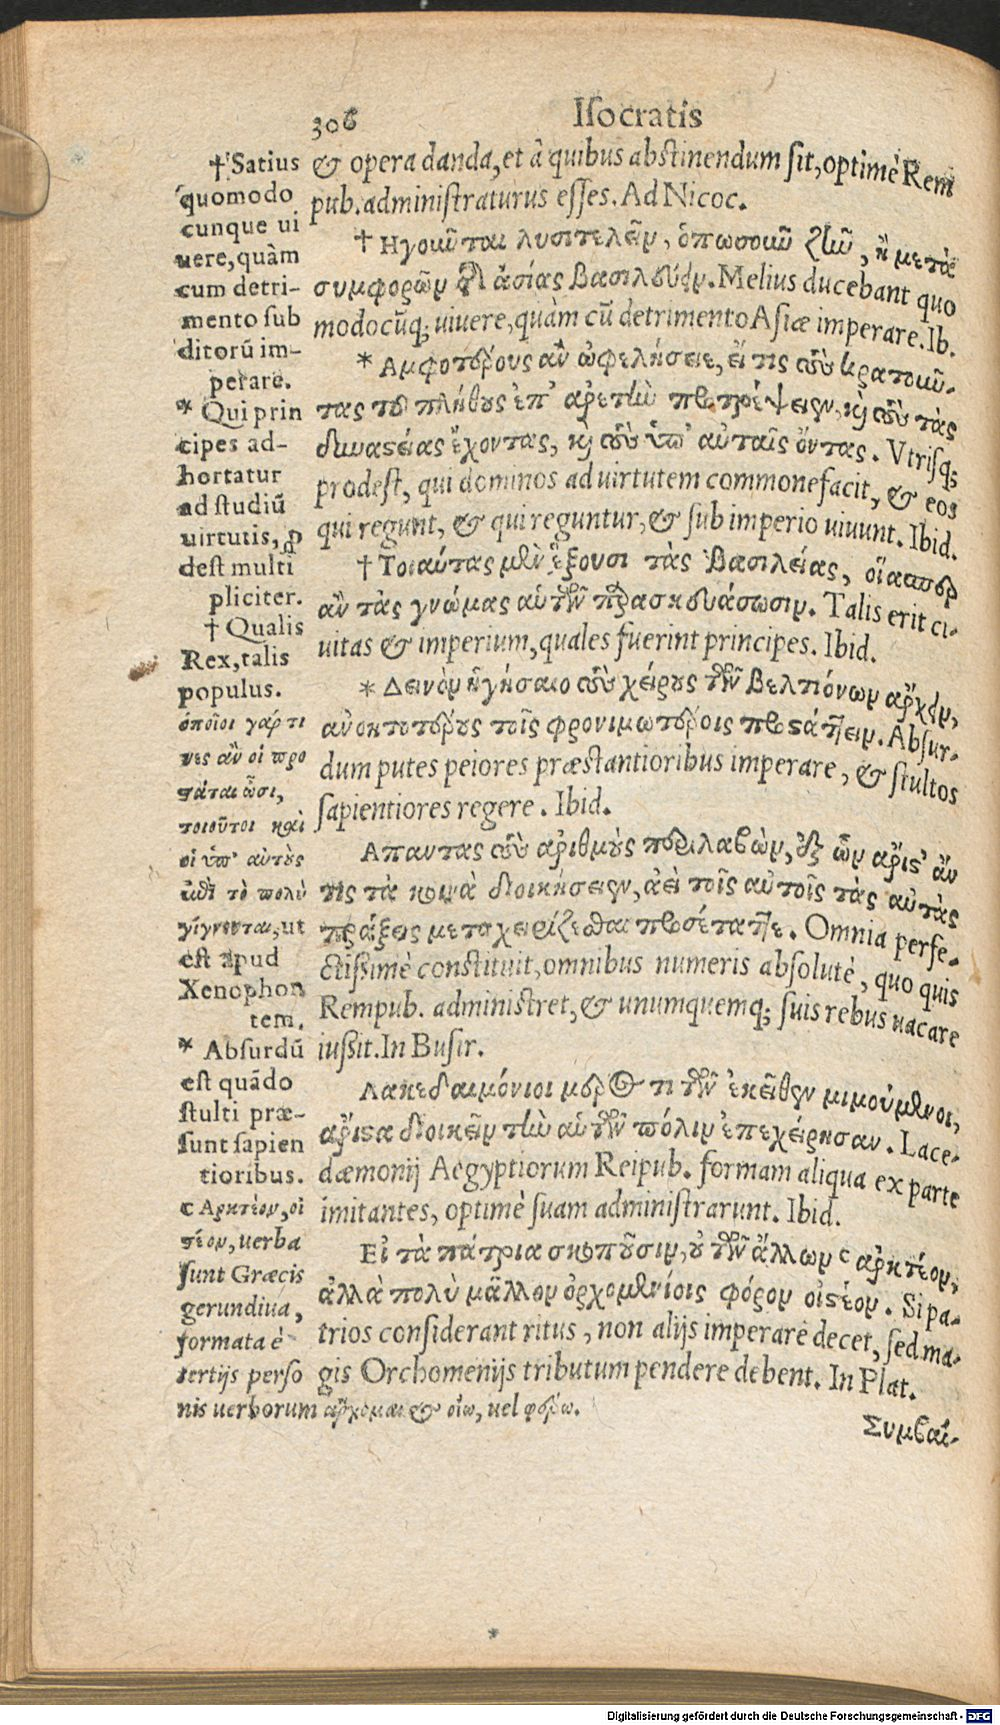 306
Isocratis
& opera danda, et à quibus abstinendum sit, optimè Rem
pub. administraturus esses. Ad Nicoc.
† Ηγοῦνται λυσιτελεῖν, ὁπωσοῦν ζῆν, ἢ μετὰ
συμφορῶν τῆς ἀσίας βασιλεύειν. Melius ducebant quo
modocūq; uiuere, quàm cū detrimento Asiæ imperare. Ib.
* Αμφοτέρους ἂν ὠφελήσειε, εἴ τις τοὺς κρατοῦν-
τας τοῦ πλήθους ἐπ' ἀρετὴν προτρέψειεν, καὶ τοὺς τὰς
δυναστείας ἔχοντας, καὶ τοὺς ὑπ' αὐταῖς ὄντας. Vtrisq;
prodest, qui dominos ad uirtutem commonefacit, & eos
qui regunt, & qui reguntur, & sub imperio uiuunt. Ibid.
† Τοιαύτας μὲν ἕξουσι τὰς βασιλείας, οἵας περ
ἂν τὰς γνώμας αὑτῶν παρασκευάσωσιν. Talis erit ci-
uitas & imperium, quales fuerint principes. Ibid.
* Δεινὸν ἡγήσαιο τοὺς χείρους τῶν βελτιόνων ἄρχειν,
ἀνοητοτέρους τοῖς φρονιμωτέροις προστάττειν. Absur-
dum putes peiores præstantioribus imperare, & stultos
sapientiores regere. Ibid.
Απαντας τοὺς ἀριθμοὺς περιλαβὼν, ἐξ ὧν ἄριστ' ἄν
τις τὰ κοινὰ διοικήσειεν, ἀεὶ τοῖς αὐτοῖς τὰς αὐτὰς
πράξεις μεταχειρίζεσθαι προσέταττε. Omnia perfe-
ctissimè constituit, omnibus numeris absolutè, quo quis
Rempub. administret, & unumquemq; suis rebus uacare
iussit. In Busir.
Λακεδαιμόνιοι μέρος τι τῶν ἐκεῖθεν μιμούμενοι,
ἄριστα διοικεῖν τὴν αὑτῶν πόλιν ἐπεχείρησαν. Lace-
dæmonij Aegyptiorum Reipub. formam aliqua ex parte
imitantes, optimè suam administrarunt. Ibid.
Εἰ τὰ πάτρια σκοποῦσιν, οὐ τῶν ἄλλων c ἀρκτέον,
ἀλλὰ πολὺ μᾶλλον ὀρχομενίοις φόρον οἰστέον. Si pa-
trios considerant ritus, non alijs imperare decet, sed ma-
gis Orchomenijs tributum pendere debent. In Plat.
Συμβαί-
† Satius
quomodo
cunque ui
uere, quàm
cum detri-
mento sub
ditorū im-
perare.
* Qui prin
cipes ad-
hortatur
ad studiū
uirtutis, p
dest multi
pliciter.
† Qualis
Rex, talis
populus.
ὁποῖοι γάρ τι
νες ἂν οἱ προ
στάται ὦσι,
τοιοῦτοι καὶ
οἱ ὑπ' αὐτοὺς
ἐπὶ τὸ πολὺ
γίγνονται, ut
est apud
Xenophon
tem.
* Absurdū
est quādo
stulti præ-
sunt sapien
tioribus.
c Αρκτέον, οἰ
στέον, uerba
sunt Græcis
gerundiua,
formata è
tertijs perso
nis uerborum ἄρχομαι & οἴω, uel φέρω.
Digitalisierung gefördert durch die Deutsche Forschungsgemeinschaft - DFG